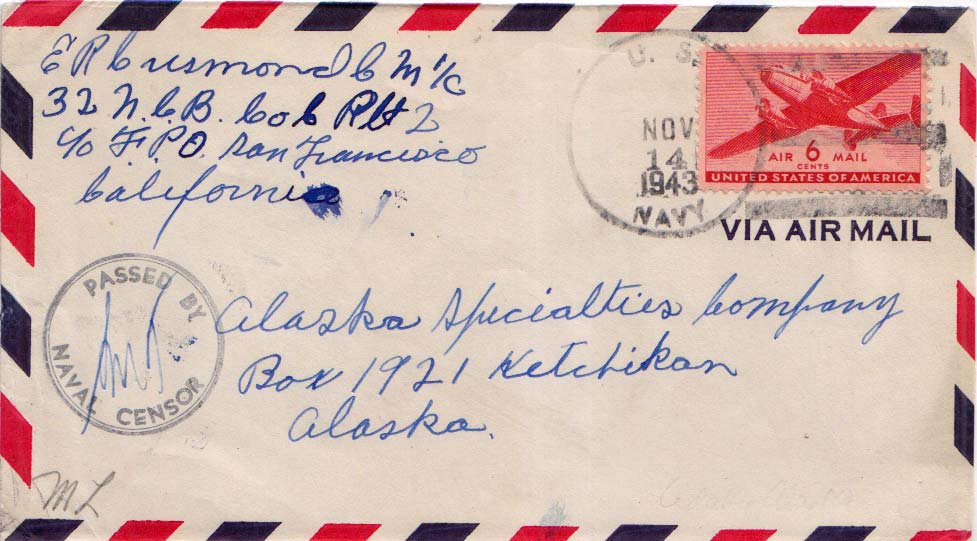 E R Cusmond C M 1/c
32 N.C.B. Co C Plt 2
c/o F.P.O. San Francisco
California
U. S.
NOV
14
1943
NAVY
AIR 6 MAIL
CENTS
UNITED STATES OF AMERICA
VIA AIR MAIL
PASSED BY
NAVAL CENSOR
Alaska Specialties Company
Box 1921 Ketchikan
Alaska.
ML